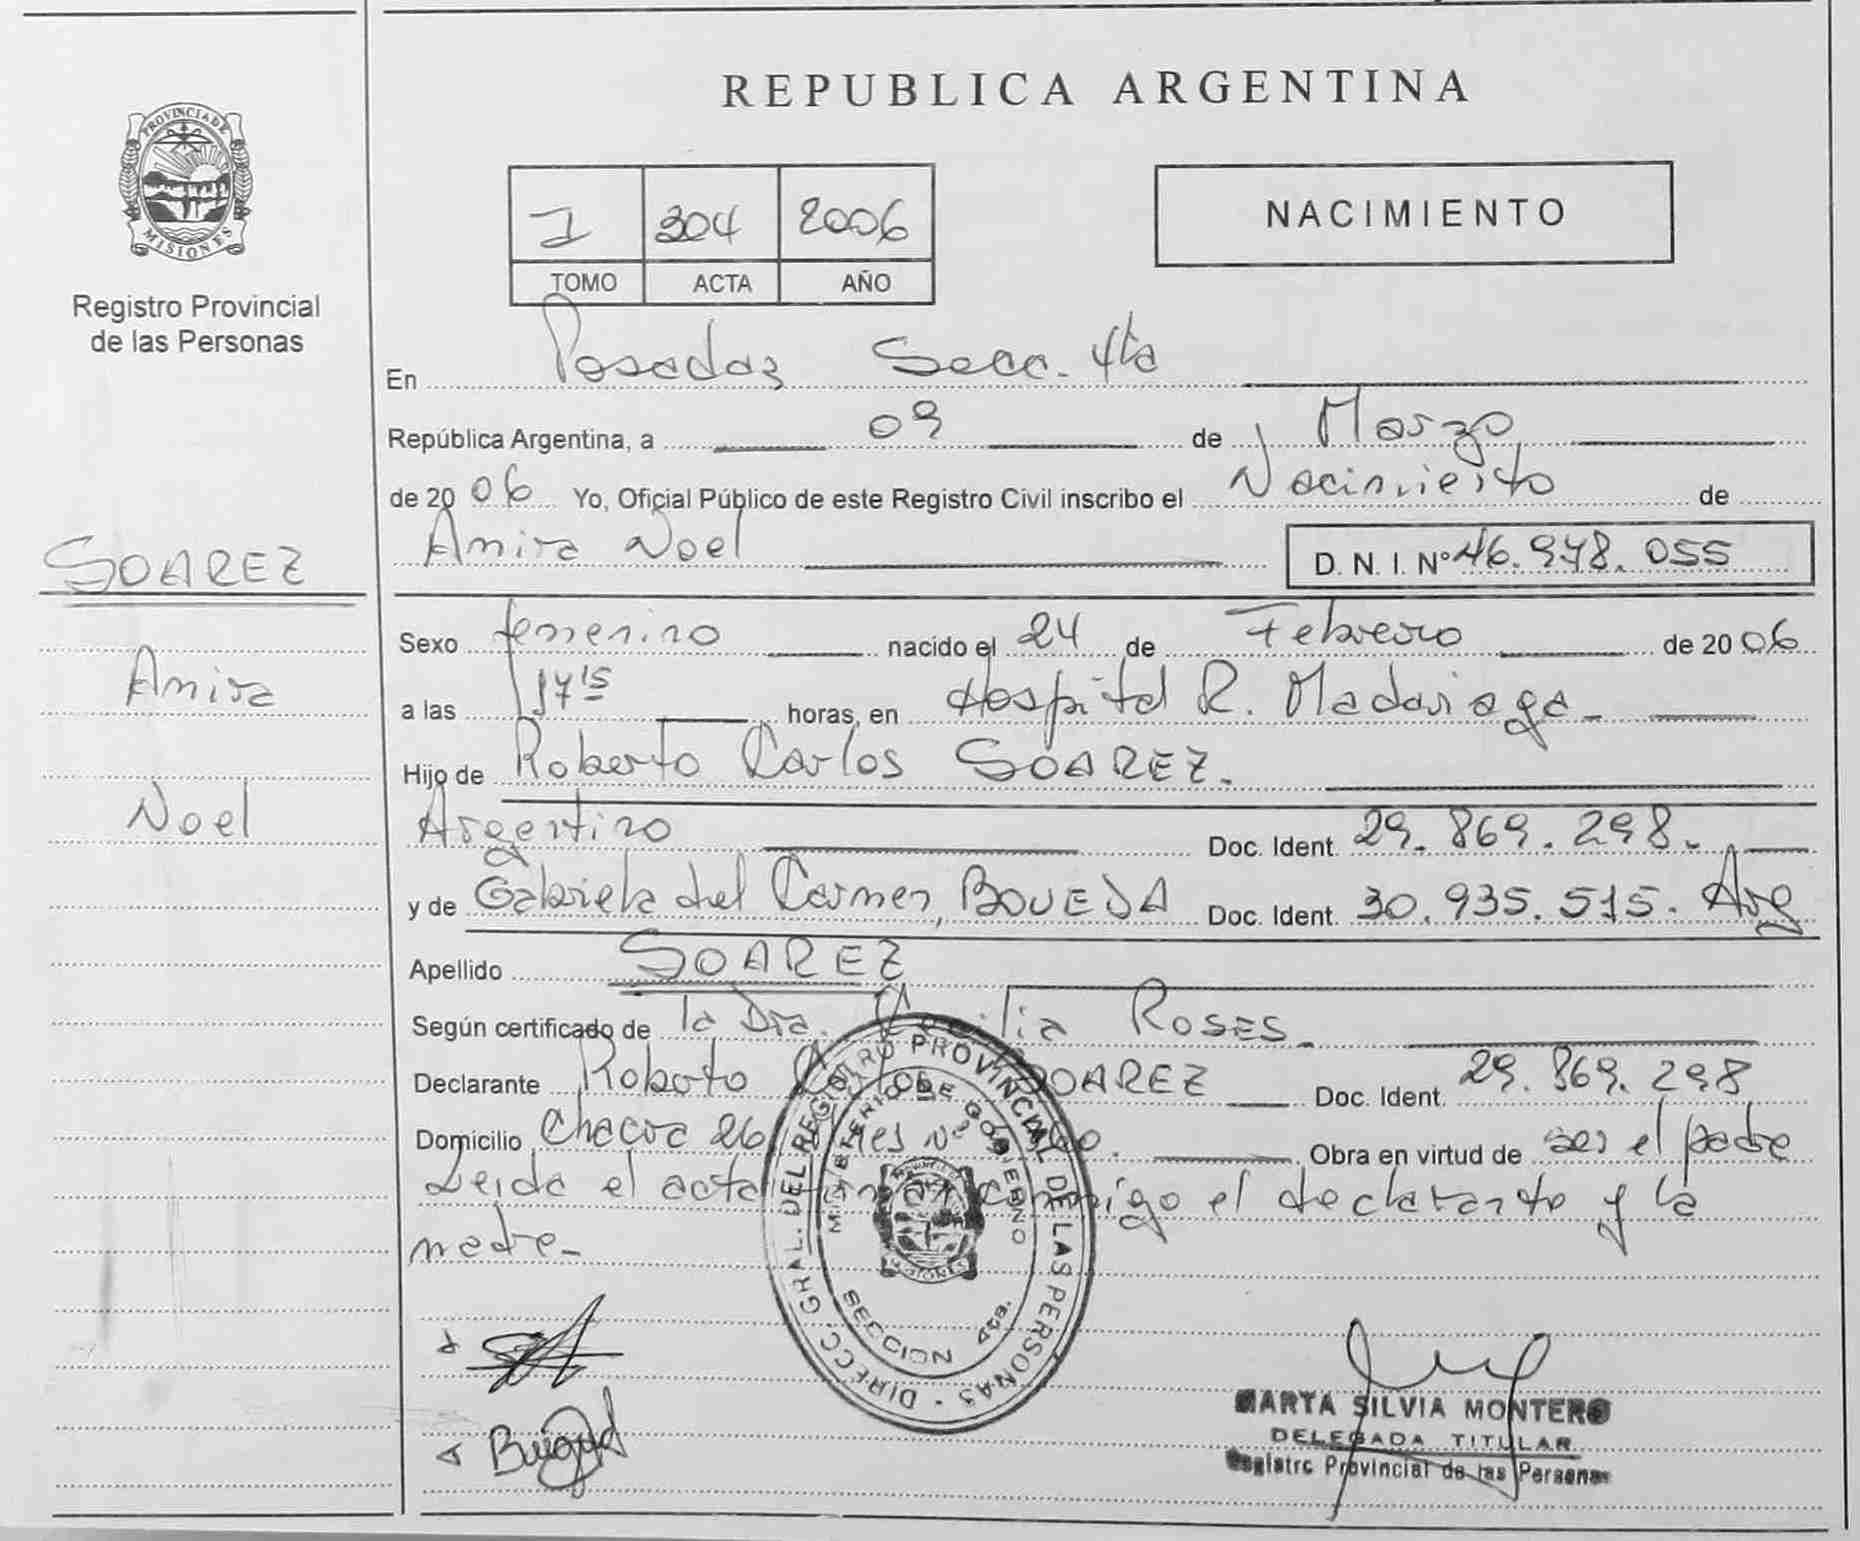 REPUBLICA ARGENTINA
PROVINCIA DE
MISIONES
Registro Provincial
de las Personas
I 304 2006
TOMO ACTA AÑO
NACIMIENTO
En Posadas Secc. 4ta
República Argentina, a 09 de Marzo
de 2006 Yo, Oficial Público de este Registro Civil inscribo el Nacimiento de
Amira Noel D. N. I. Nº 46.978.055
SOAREZ
Amira
Noel
Sexo femenino nacido el 24 de Febrero de 2006
a las 17 15 horas, en Hospital R. Madariaga -
Hijo de Roberto Carlos SOAREZ.
Argentino Doc. Ident. 29.869.298.
y de Gabriela del Carmen, BOVEDA Doc. Ident. 30.935.515. Arg
Apellido SOAREZ
Según certificado de la Dra. ROSES -
Declarante Roberto SOAREZ Doc. Ident. 29.869.298
Domicilio Chacra 26 Nº Obra en virtud de ser el padre
Leida el acta conmigo el declarante y la
madre -
DIRECC. GRAL. DEL REGISTRO PROVINCIAL DE LAS PERSONAS -
MINISTERIO DE GOBIERNO
SECCION 4ta.
MARTA SILVIA MONTERO
DELEGADA TITULAR
Registro Provincial de las Personas